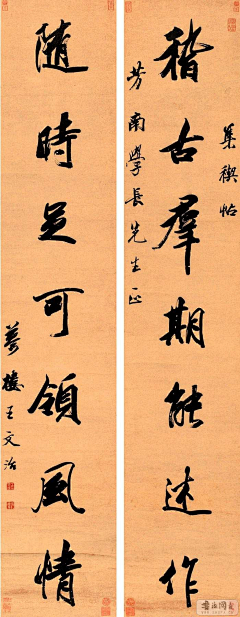 集禊帖
稽古群期能述作
芳南學長先生正
隨時足可領風情
夢樓王文治